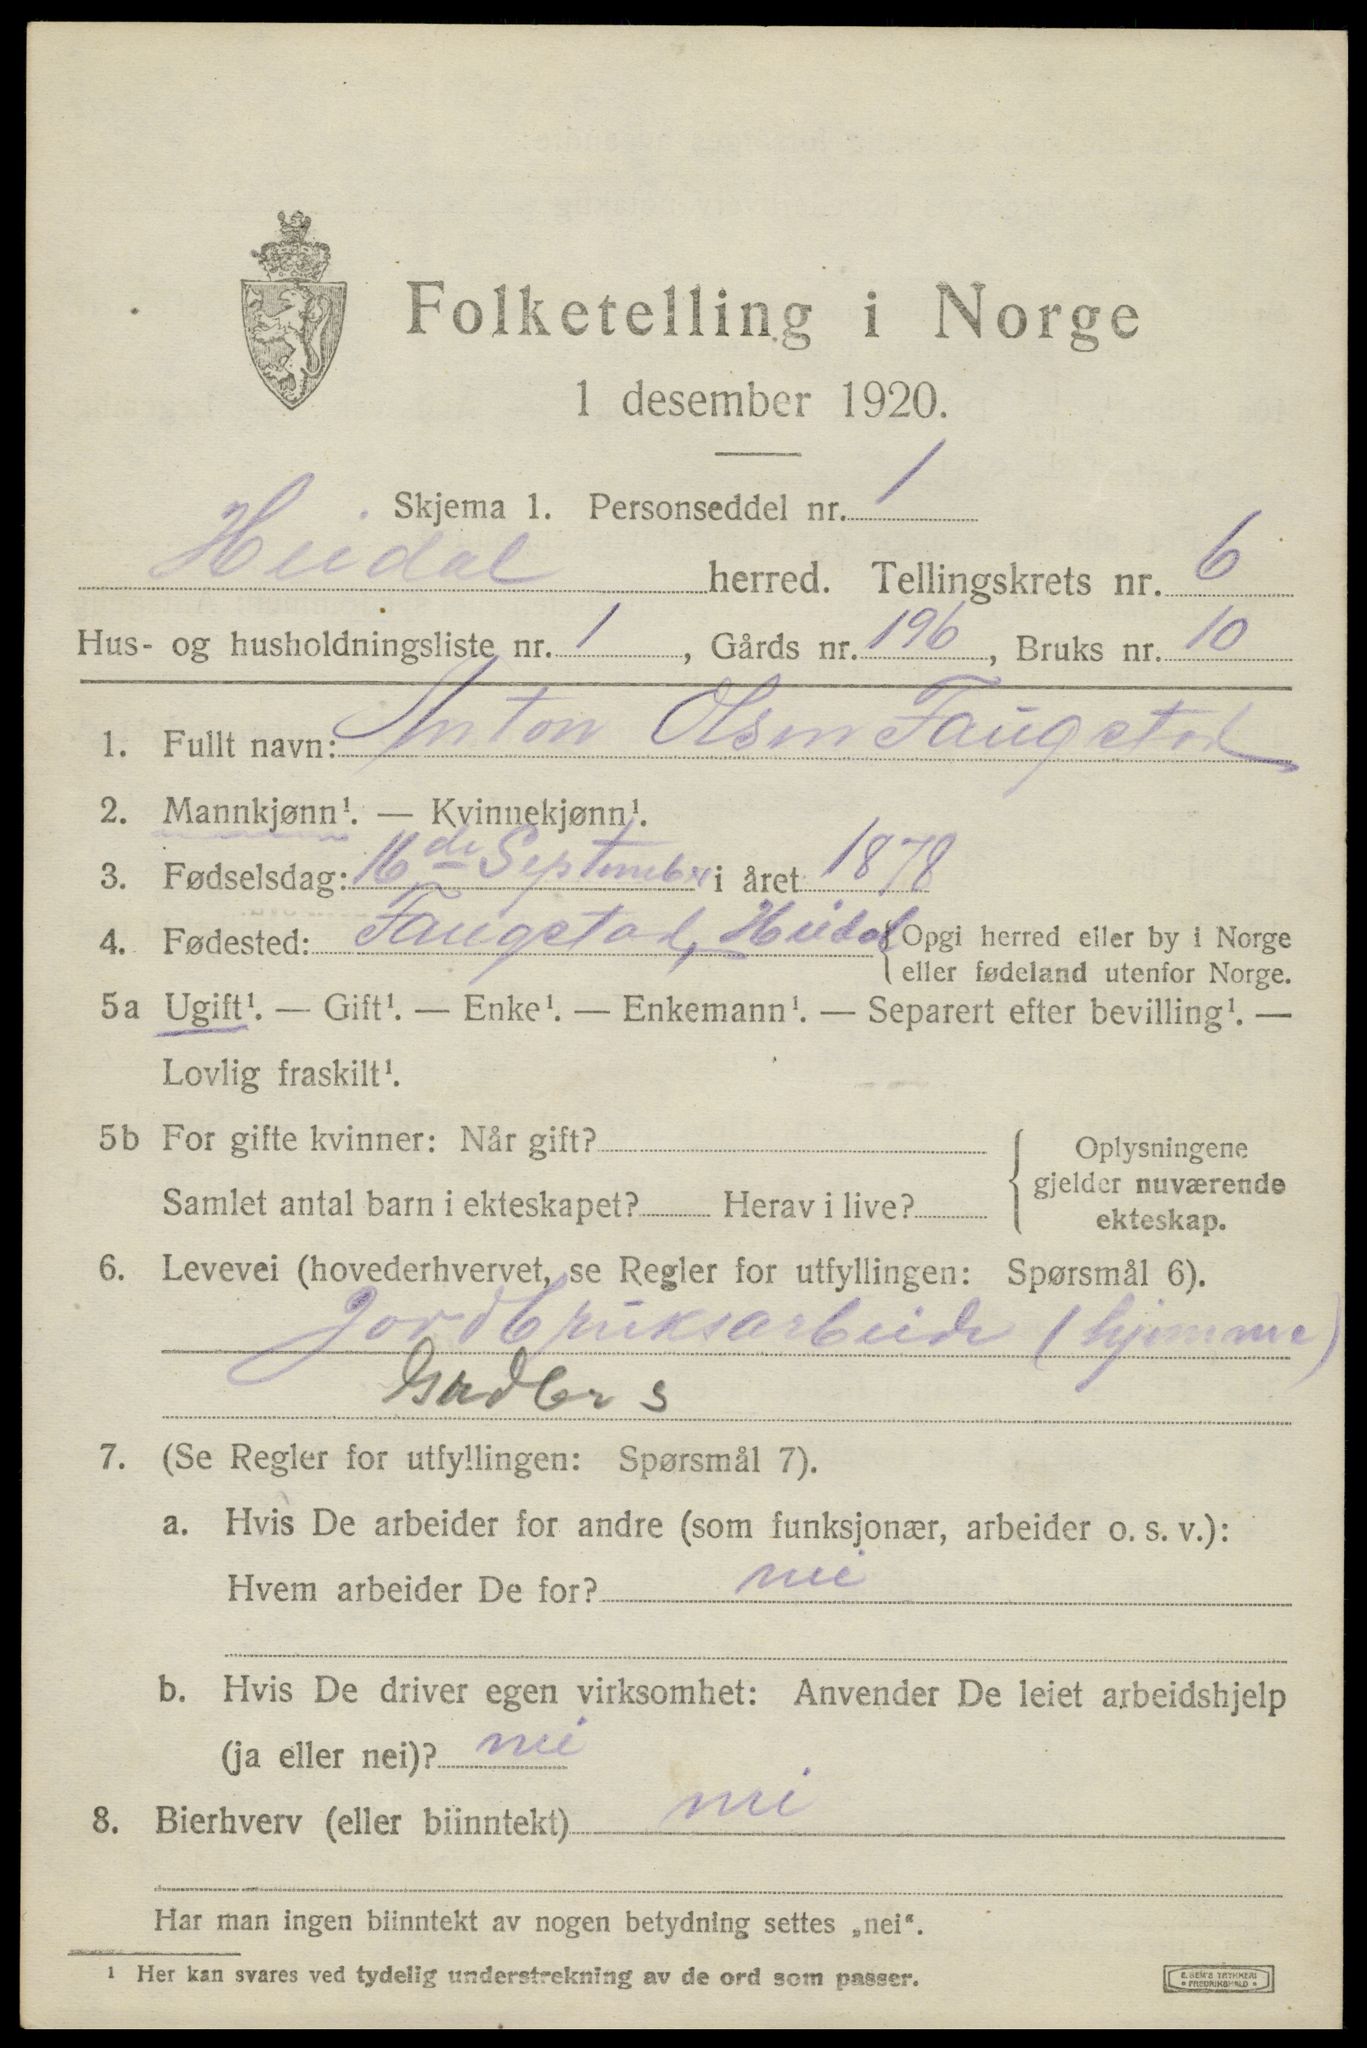 Folketelling i Norge
1 desember 1920.
Skjema 1. Personseddel nr. 1
Heidal herred. Tellingskrets nr. 6
Hus- og husholdningsliste nr. 1, Gårds nr. 196, Bruks nr. 10
1. Fullt navn: Anton Olsen Faugstad
2. Mannkjønn¹. — Kvinnekjønn¹.
3. Fødselsdag: 16de September i året 1878
4. Fødested: Faugstad, Heidal {Opgi herred eller by i Norge
eller fødeland utenfor Norge.
5a Ugift¹. — Gift¹. — Enke¹. — Enkemann¹. — Separert efter bevilling¹. —
Lovlig fraskilt¹.
5b For gifte kvinner: Når gift?
Samlet antal barn i ekteskapet? Herav i live?
Oplysningene
gjelder nuværende
ekteskap.
6. Levevei (hovederhvervet, se Regler for utfyllingen: Spørsmål 6).
Jordbruksarbeide (hjemme)
Grdbr s
7. (Se Regler for utfyllingen: Spørsmål 7).
a. Hvis De arbeider for andre (som funksjonær, arbeider o. s. v.):
Hvem arbeider De for? nei
b. Hvis De driver egen virksomhet: Anvender De leiet arbeidshjelp
(ja eller nei)? nei
8. Bierhverv (eller biinntekt) nei
Har man ingen biinntekt av nogen betydning settes „nei“.
¹ Her kan svares ved tydelig understrekning av de ord som passer.
E. SEM'S TRYKKERI
• FREDRIKSHALD •